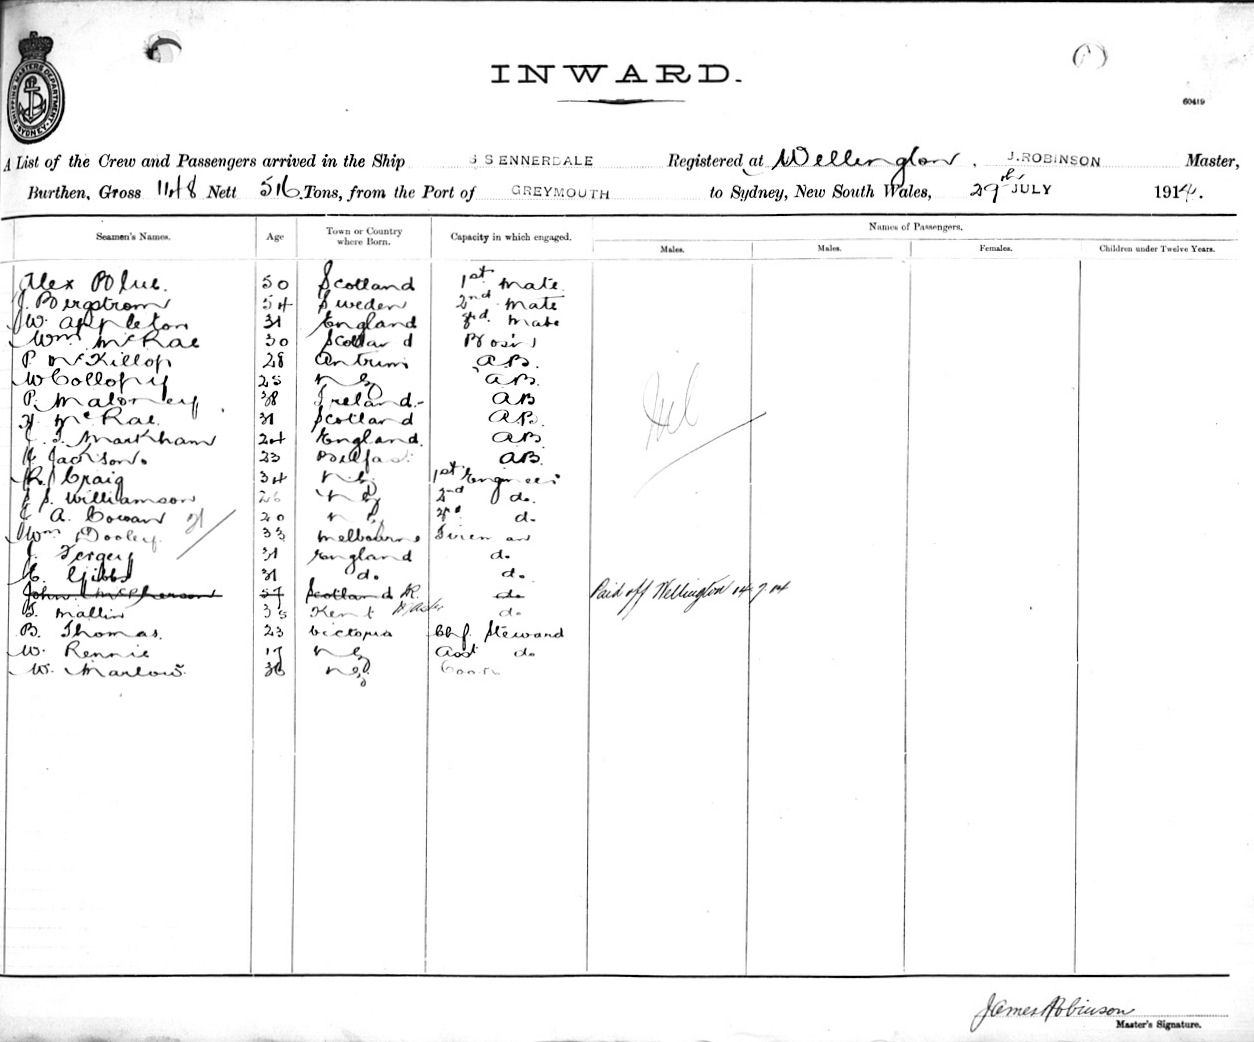 SHIPPING MASTERS DEPARTMENT SYDNEY
INWARD.
60419
A List of the Crew and Passengers arrived in the Ship S S ENNERDALE Registered at Wellington, J. ROBINSON Master,
Burthen, Gross 1148 Nett 516 Tons, from the Port of GREYMOUTH to Sydney, New South Wales, 29th JULY 1914.
Seamen's Names. Age Town or Country where Born. Capacity in which engaged. Names of Passengers.
Males. Males. Females. Children under Twelve Years.
Alex Blue. 50 Scotland 1st Mate.
J. Bergstrom 54 Sweden 2nd Mate
W. Appleton 31 England 3rd. Mate
Wm McRae 30 Scotland Bos'n
P. McKillop 28 Antrim A.B.
W Collopy 25 N Z A.B.
P. Maloney 38 Ireland.- AB
McRae 31 Scotland A.B.
Markham 24 England. AB
Jackson. 23 Belfast AB.
R. Craig 34 N.Z. 1st Engineer
Williamson 26 N Z 2nd do.
A. Cowan 20 N Z 3rd do
21
Wm Dooley. 33 Melbourne Fireman
J. Fergey 31 England do.
C. Gibbs 31 do. do.
John McPherson 57 Scotland do Paid off Wellington 14.7.14
Mallin 35 Kent do
B. Thomas. 23 Victoria Chf. Steward
W. Rennie 17 N Z Asst do
W. Marlow 36 N.Z. Cook
Nil
James Robinson
Master's Signature.